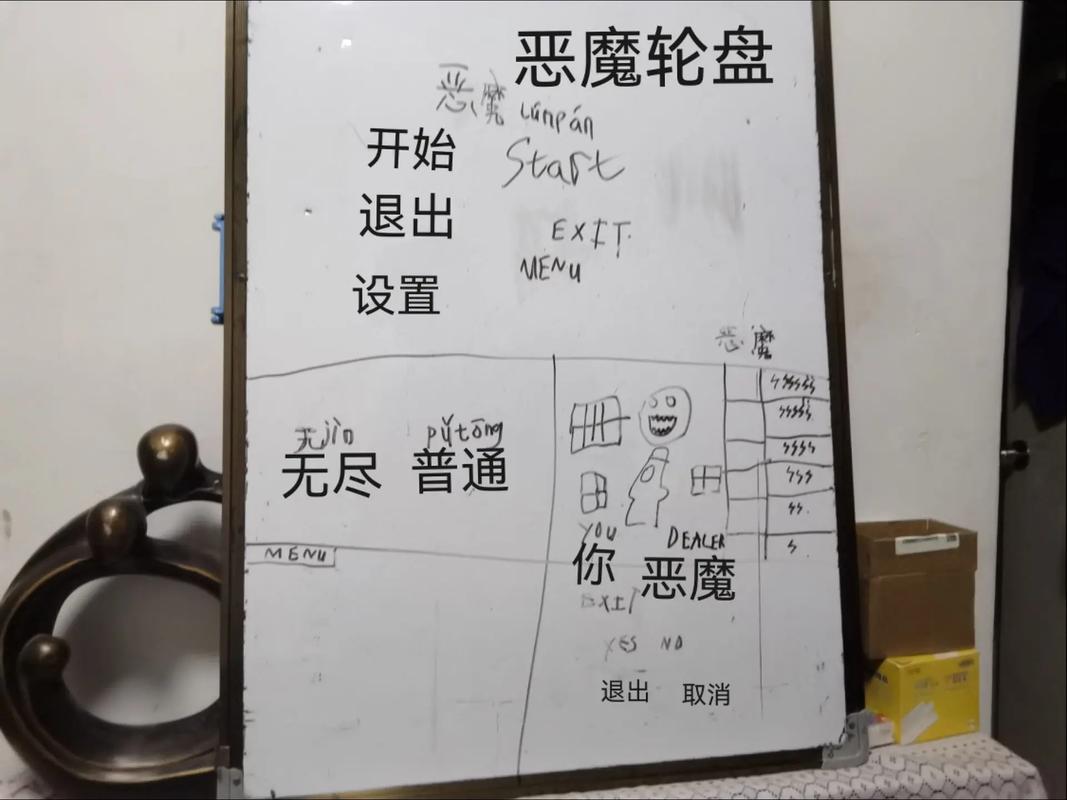 恶魔轮盘
恶魔 lúnpán
开始 Start
退出 EXIT
MENU
设置
恶魔
无jìn pǔtōng
无尽 普通
YOU DEALER
MENU
你 恶魔
EXIT
YES NO
退出 取消